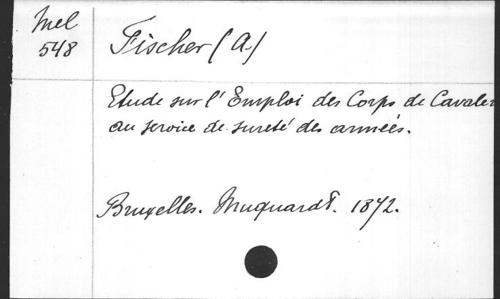 Mel
548
Fischer (A.)
Etude sur l'Emploi des Corps de Cavaler
au service de sureté des armées.
Bruxelles. Muquardt. 1872.